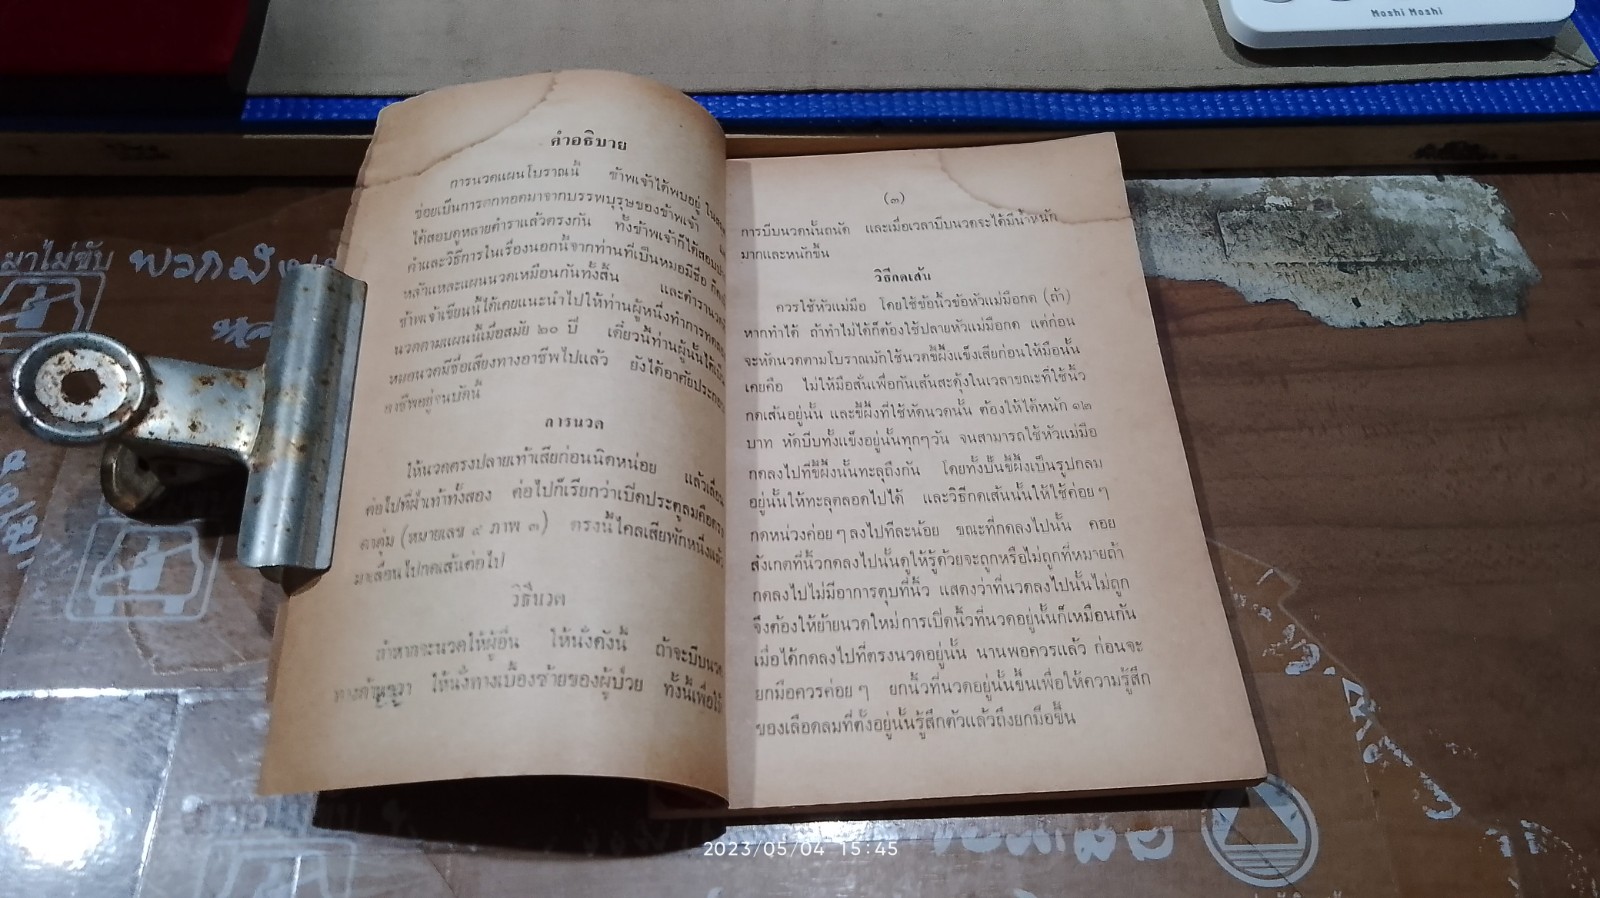 Moshi Moshi
คำอธิบาย
การนวดแผนโบราณนี้ ข้าพเจ้าได้พบอยู่
ซ่อยเป็นการตกทอดมาจากบรรพบุรุษของข้าพเจ้า
ได้สอบดูหลายตำราแล้วตรงกัน ทั้งข้าพเจ้าก็ได้สอบ
คำและวิธีการในเรื่องนอกนี้จากท่านที่เป็นหมอมีชื่อ
หล้าแหละแผนนวดเหมือนกันทั้งสิ้น และตำรานวด
ข้าพเจ้าเขียนนี้ได้เคยแนะนำไปให้ท่านผู้หนึ่งทำการ
นวดตามแผนนี้เมื่อสมัย ๒๐ ปี เดี๋ยวนี้ท่านผู้นั้นได้เป็น
หมอนวดมีชื่อเสียงทางอาชีพไปแล้ว ยังได้อาศัยประกอบ
อาชีพอยู่จนบัดนี้
การนวด
ให้นวดตรงปลายเท้าเสียก่อนนิดหน่อย แล้วเลื่อน
ต่อไปที่ฝ่าเท้าทั้งสอง ต่อไปก็เรียกว่าเปิดประตูลมคือตรง
ตาตุ่ม (หมายเลข ๔ ภาพ ๓) ตรงนี้ไคลเสียพักหนึ่งแล้ว
มาเลื่อนไปกดเส้นต่อไป
วิธีนวด
ถ้าหากจะนวดให้ผู้อื่น ให้นั่งดังนี้ ถ้าจะบีบนวด
ทางด้านขวา ให้นั่งทางเบื้องซ้ายของผู้ป่วย ทั้งนี้เพื่อให้
(๓)
การบีบนวดนั้นถนัด และเมื่อเวลาบีบนวดจะได้มีน้ำหนัก
มากและหนักขึ้น
วิธีกดเส้น
ควรใช้หัวแม่มือ โดยใช้ข้อนิ้วข้อหัวแม่มือกด (ถ้า)
หากทำได้ ถ้าทำไม่ได้ก็ต้องใช้ปลายหัวแม่มือกด แต่ก่อน
จะหัดนวดตามโบราณมักใช้นวดขี้ผึ้งแข็งเสียก่อนให้มือนั้น
เคยคือ ไม่ให้มือสั่นเพื่อกันเส้นสะดุ้งในเวลาขณะที่ใช้นิ้ว
กดเส้นอยู่นั้น และขี้ผึ้งที่ใช้หัดนวดนั้น ต้องให้ได้หนัก ๑๒
บาท หัดบีบทั้งแข็งอยู่นั้นทุกๆวัน จนสามารถใช้หัวแม่มือ
กดลงไปที่ขี้ผึ้งนั้นทะลุถึงกัน โดยทั้งปั้นขี้ผึ้งเป็นรูปกลม
อยู่นั้นให้ทะลุตลอดไปได้ และวิธีกดเส้นนั้นให้ใช้ค่อย ๆ
กดหน่วงค่อย ๆ ลงไปทีละน้อย ขณะที่กดลงไปนั้น คอย
สังเกตที่นิ้วกดลงไปนั้นดูให้รู้ด้วยจะถูกหรือไม่ถูกที่หมายถ้า
กดลงไปไม่มีอาการตุบที่นิ้ว แสดงว่าที่นวดลงไปนั้นไม่ถูก
จึงต้องให้ย้ายนวดใหม่ การเปิดนิ้วที่นวดอยู่นั้นก็เหมือนกัน
เมื่อได้กดลงไปที่ตรงนวดอยู่นั้น นานพอควรแล้ว ก่อนจะ
ยกมือควรค่อย ๆ ยกนิ้วที่นวดอยู่นั้นขึ้นเพื่อให้ความรู้สึก
ของเลือดลมที่ตั้งอยู่นั้นรู้สึกตัวแล้วถึงยกมือขึ้น
มาไม่ขับ
2023/05/04 15:45